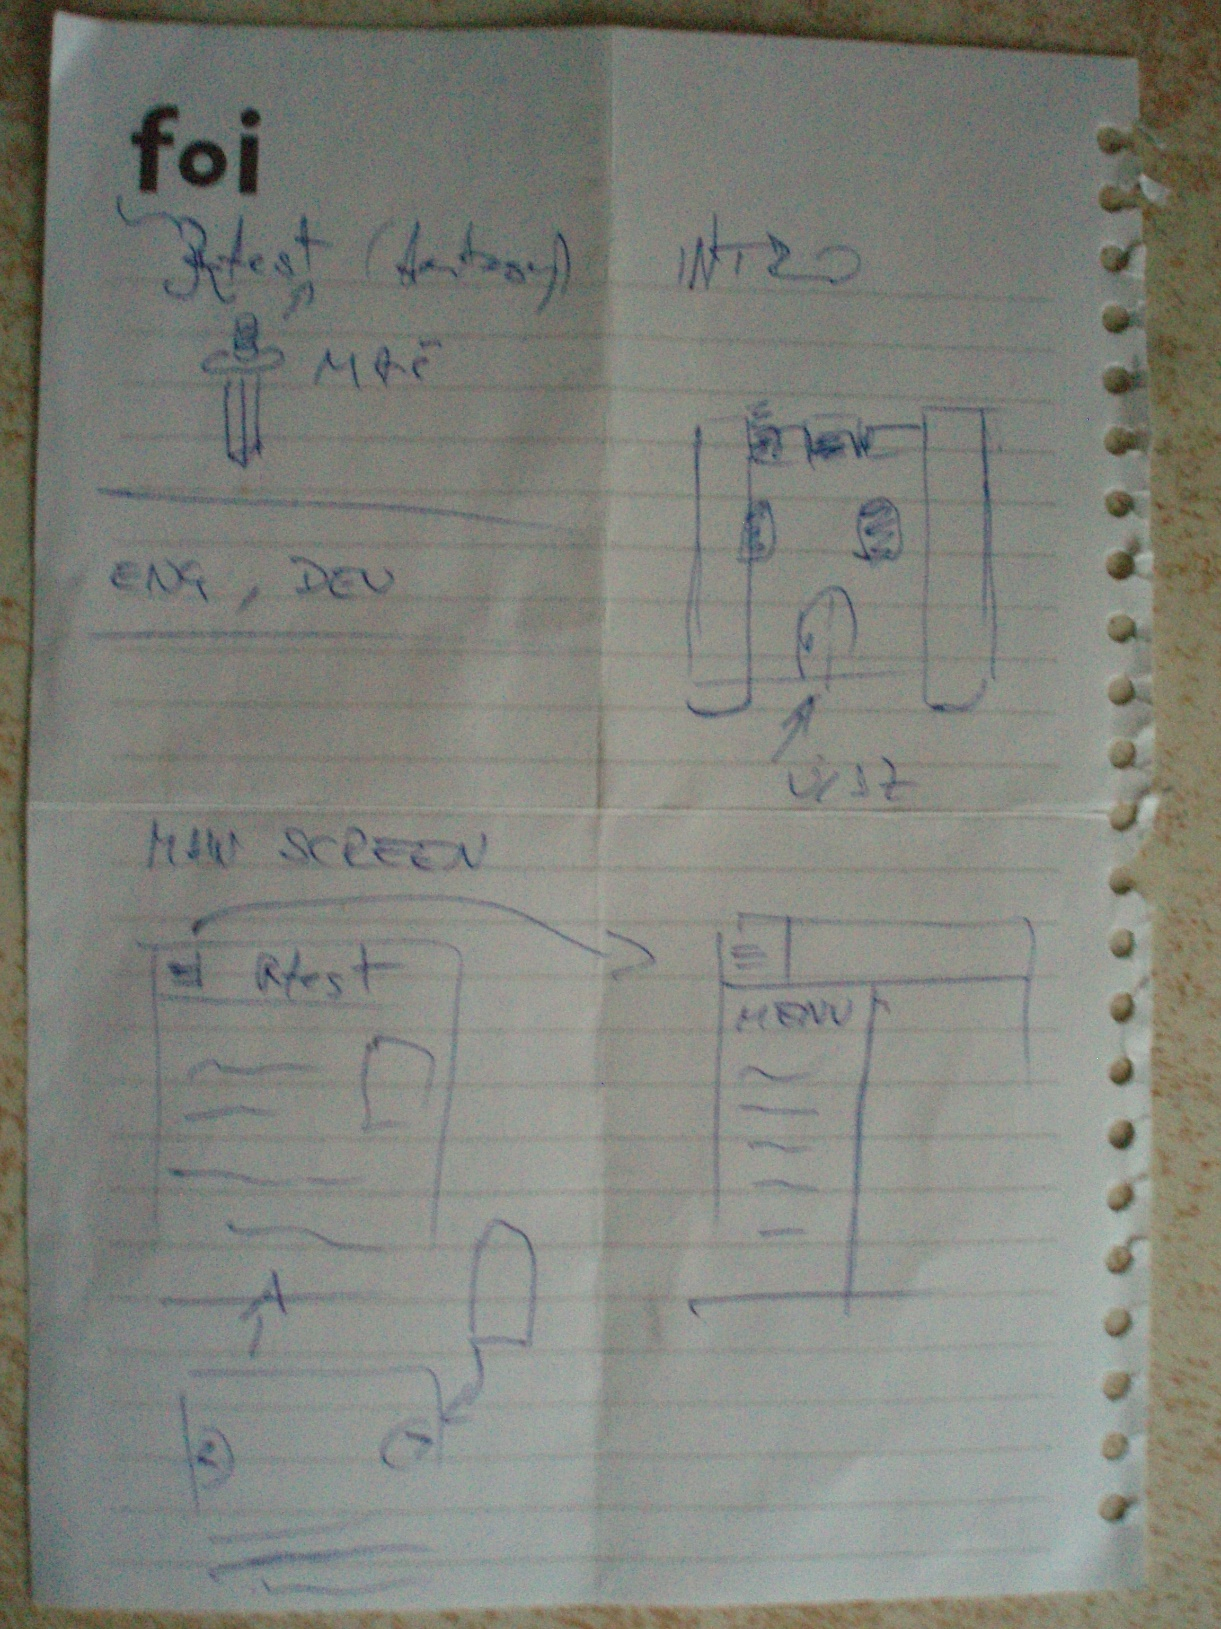 foi
Rtest (fantasy)
MAČ
ENG, DEU
INTRO
MAIN SCREEN
Rtest
MENU